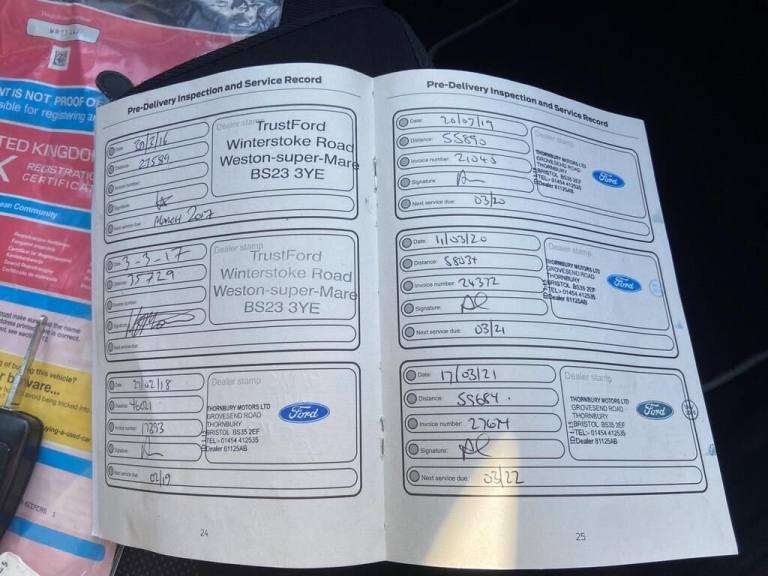 NT IS NOT PROOF O
sible for registering a
TED KINGDO
K
REGISTRATI
CERTIFICA
ean Community
must make sure
the name
is correct.
of buying this vehicle?
ware...
avoid being tricked into
ying-a-used-car
KEEPERS
Pre-Delivery Inspection and Service Record
Date: 30/3/16
Distance: 27589
Invoice number:
Signature:
Next service due: March 2017
Dealer stamp
TrustFord
Winterstoke Road
Weston-super-Mare
BS23 3YE
Date: 3-3-17
Distance: 35729
Invoice number:
Signature:
Next service due:
Dealer stamp
TrustFord
Winterstoke Road
Weston-super-Mare
BS23 3YE
Date: 21/02/18
Distance: 46021
Invoice number:
Signature:
Next service due: 02/19
Dealer stamp
THORNBURY MOTORS LTD
GROVESEND ROAD
THORNBURY
BRISTOL BS35 2EF
TEL:- 01454 412535
Dealer 81125AB
Ford
24
Pre-Delivery Inspection and Service Record
Date: 20/07/19
Distance: 55890
Invoice number: 21043
Signature:
Next service due: 03/20
Dealer stamp
THORNBURY MOTORS LTD
GROVESEND ROAD
THORNBURY
BRISTOL BS35 2EF
TEL:- 01454 412535
Dealer 81125AB
Ford
Date: 11/03/20
Distance: 58034
Invoice number: 24372
Signature:
Next service due: 03/21
Dealer stamp
THORNBURY MOTORS LTD
GROVESEND ROAD
THORNBURY
BRISTOL BS35 2EF
TEL:- 01454 412535
Dealer 81125AB
Ford
Date: 17/03/21
Distance: 58684.
Invoice number:
Signature:
Next service due: 03/22
Dealer stamp
THORNBURY MOTORS LTD
GROVESEND ROAD
THORNBURY
BRISTOL BS35 2EF
TEL:- 01454 412535
Dealer 81125AB
Ford
25